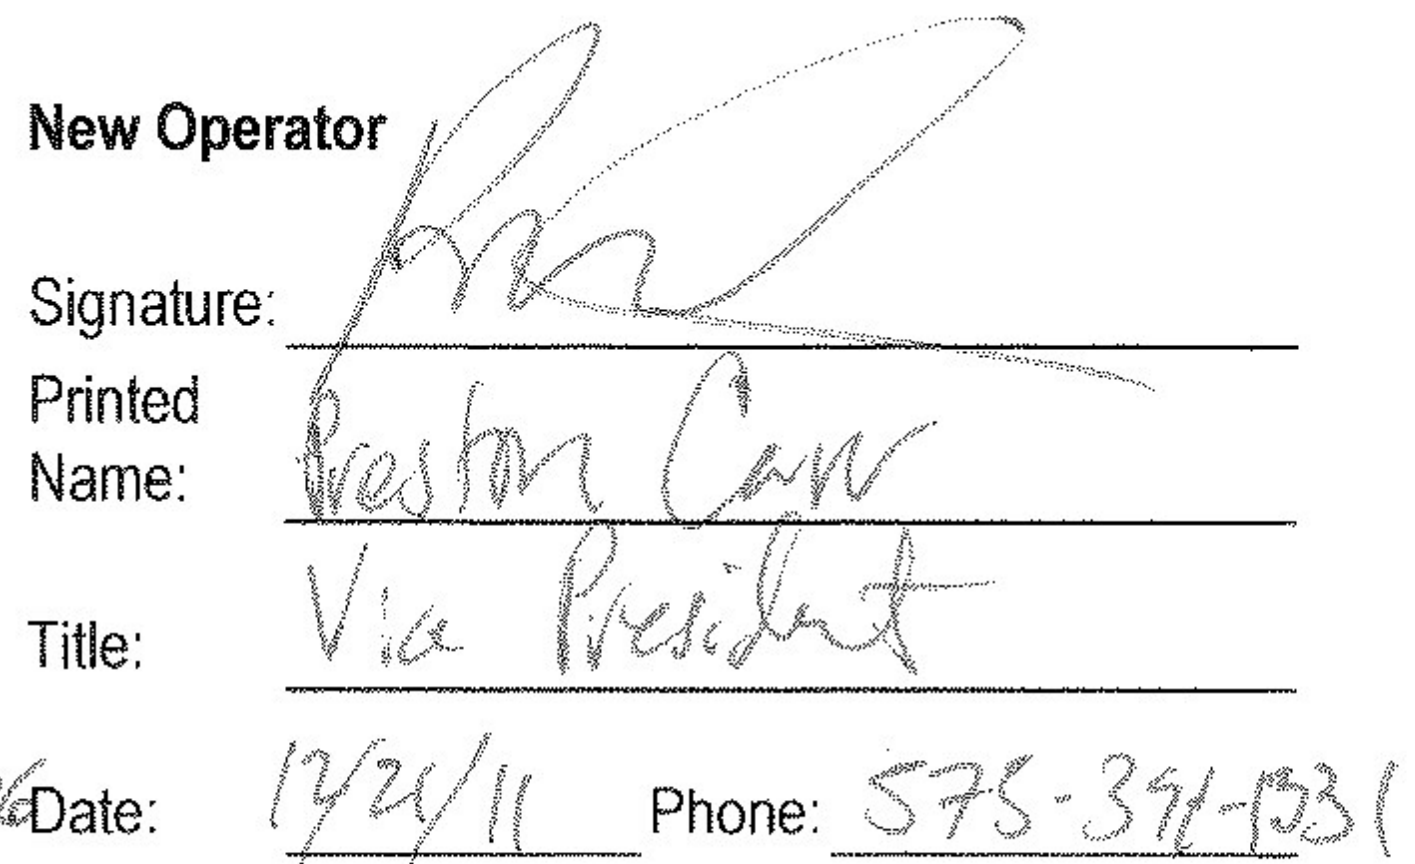 New Operator
Signature:
Printed
Name: Preston Carr
Title: Vice President
Date: 12/21/11 Phone: 575-391-1331